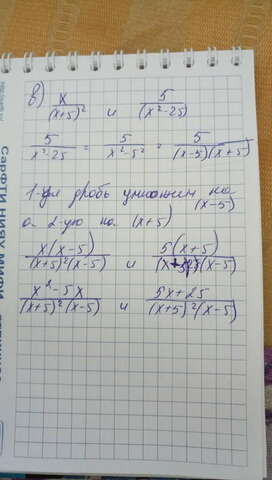 в) x/(x+5)² и 5/(x²-25)
5/(x²-25) = 5/(x²-5²) = 5/((x-5)(x+5))
1-ую дробь умножим на (x-5)
а 2-ую на (x+5)
x(x-5)/((x+5)²(x-5)) и 5(x+5)/((x+5)²(x-5))
(x²-5x)/((x+5)²(x-5)) и (5x+25)/((x+5)²(x-5))
САРФТИ НИЯУ МИФИ